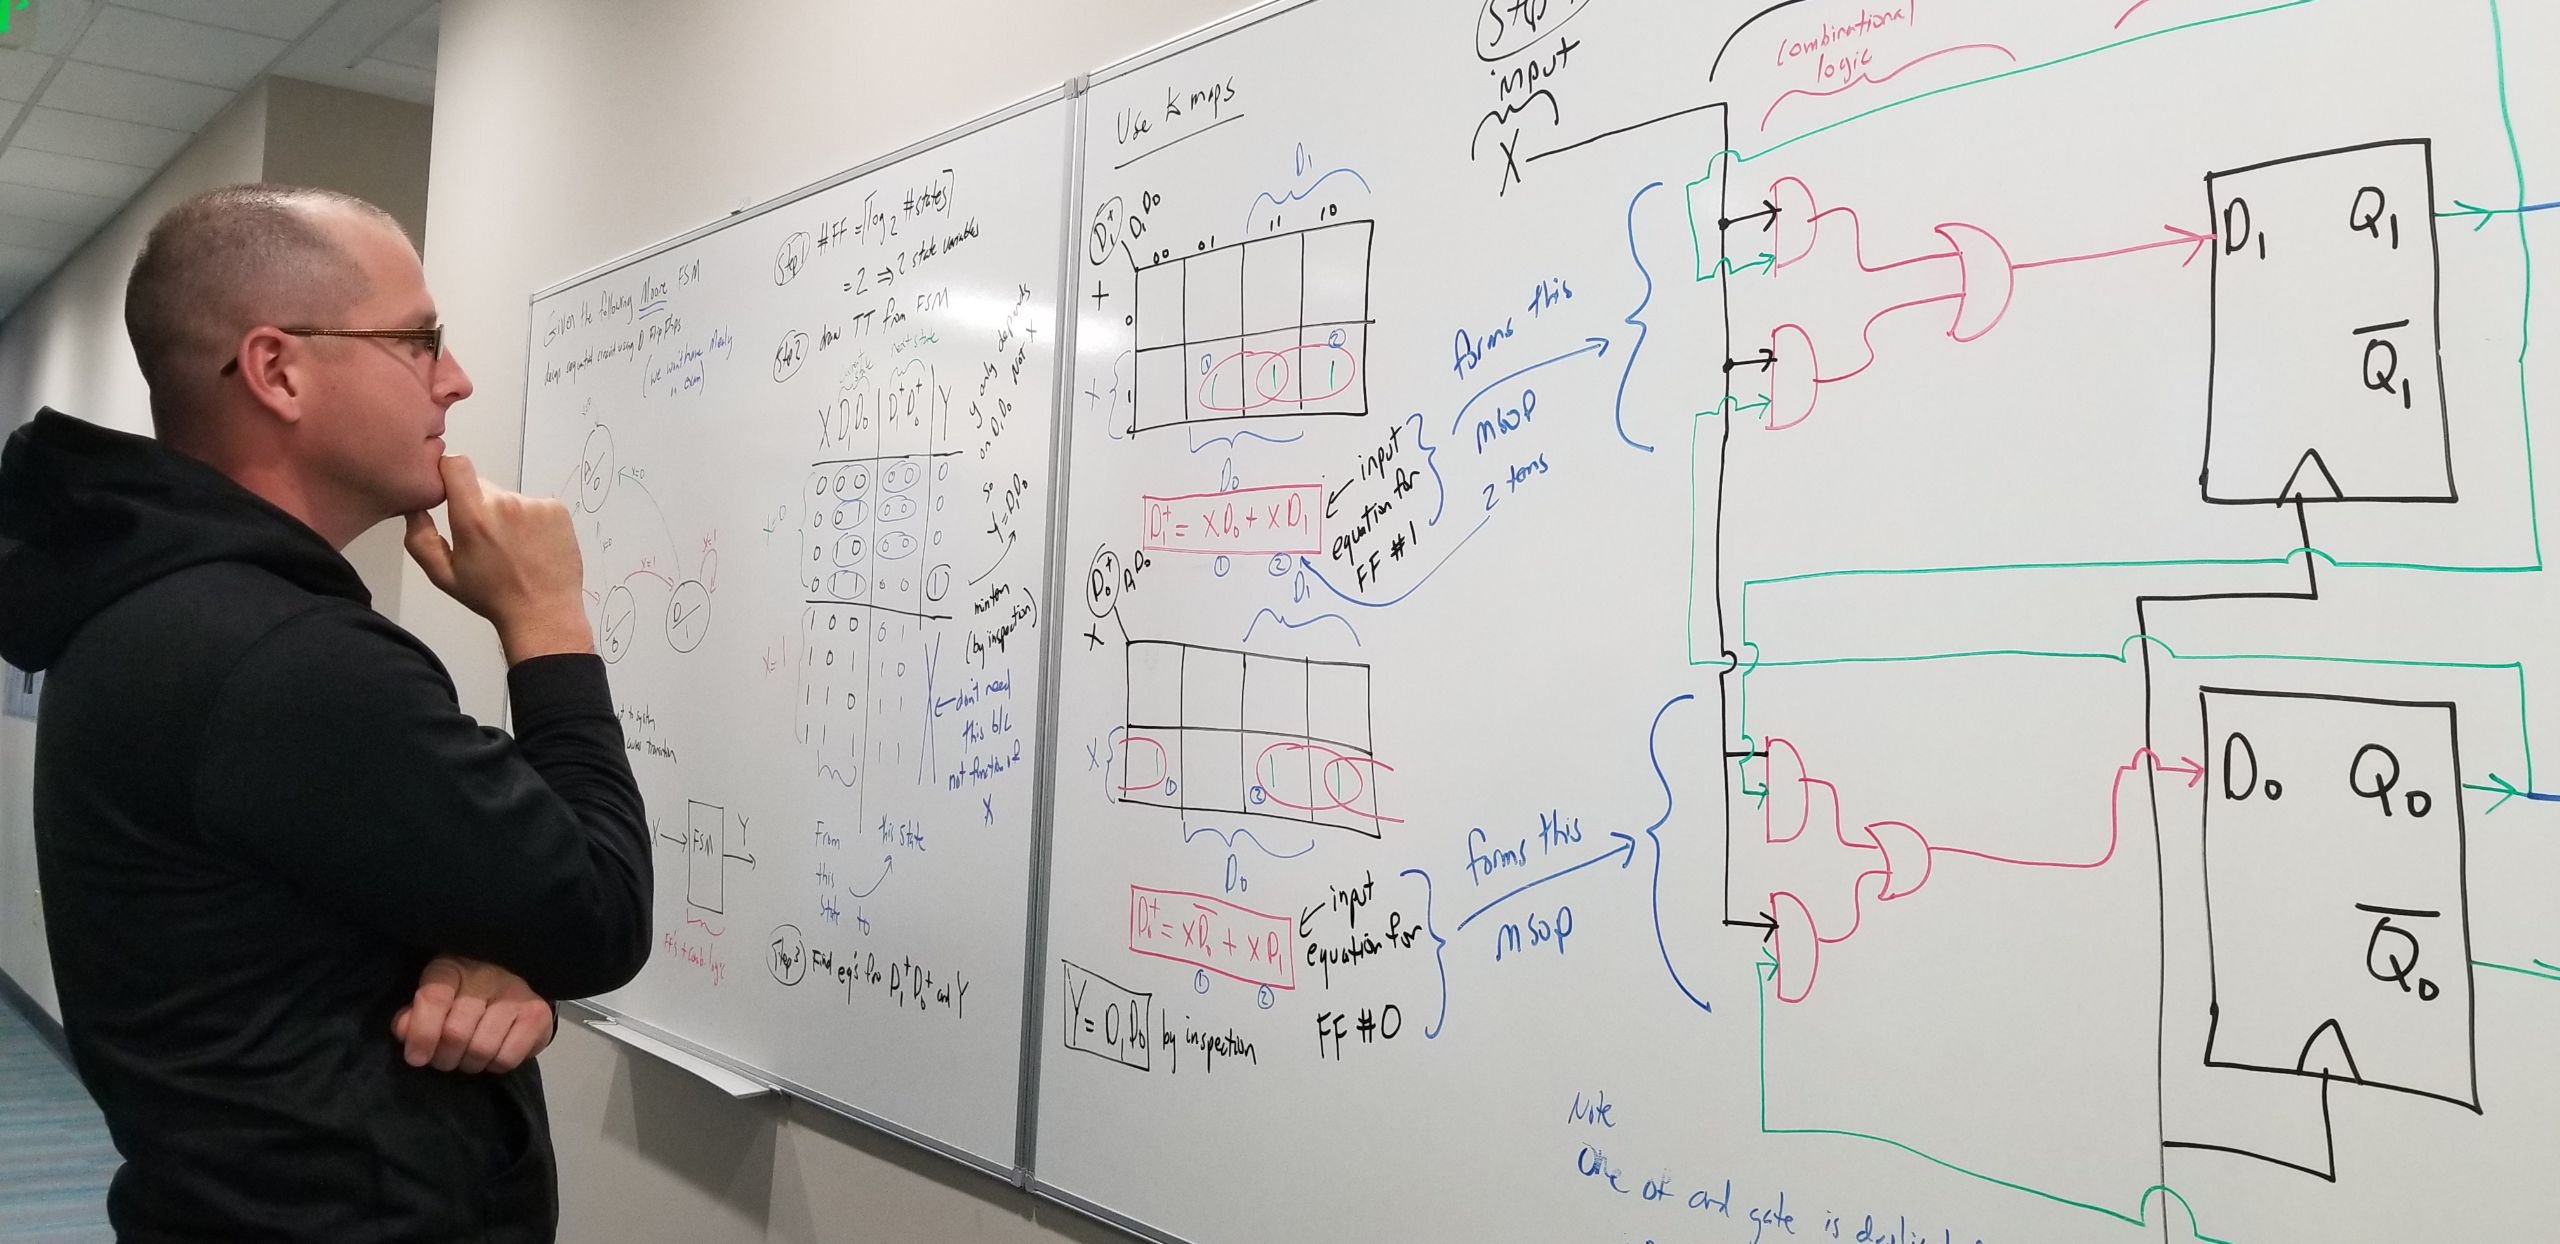 Given the following Moore FSM
design sequential circuit using D Flip Flops
(we won't have Mealy
on exam)
X=0
X=0
X=1
X=1
C/0
D/1
X
FSM
Y
FF's + comb. logic
Step 1 #FF = ⌈log2 #states⌉
= 2 ⇒ 2 state variables
Step 2 draw TT from FSM
next state
X D1 D0 D1+ D0+ Y
0 0 0 0 0 0
0 0 1 0 0 0
0 1 0 0 0 0
0 1 1 0 0 1
1 0 0 0 1
1 0 1 1 0
1 1 0 1 1
1 1 1 1 1
X=0
X=1
Y only depends
on D1 D0 Not X
so
Y = D1 D0
minterm
(by inspection)
← don't need
this b/c
not function of
X
From
this
state to
this state
Step 3 Find eq's for D1+ D0+ and Y
Use k maps
D1+
D1 D0
D1
00 01 11 10
0
X 1
① 1 1 1 ②
D0
D1+ = X D0 + X D1
① ②
← input
equation for
FF #1
forms this
MSOP
2 terms
D0+
D1 D0
X
D1
X
1 ① ② 1 1
D0
D0+ = X D̅0 + X D1
① ②
← input
equation for
FF #0
forms this
MSOP
Y = D1 D0 by inspection
Step
input
X
combinational
logic
D1 Q1
Q̅1
D0 Q0
Q̅0
Note
One of and gate is